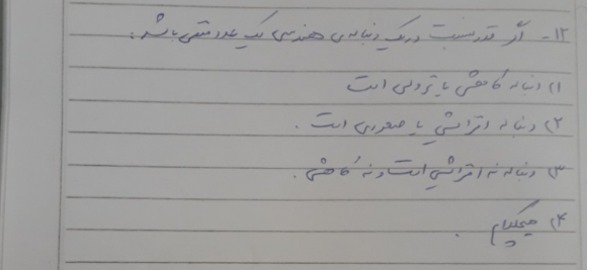 ۱۲- اگر قدر نسبت در یک دنباله‌ی هندسی یک عدد منفی باشد:
۱) دنباله کاهشی یا نزولی است
۲) دنباله افزایشی یا صعودی است.
۳) دنباله نه افزایشی است و نه کاهشی.
۴) هیچکدام.